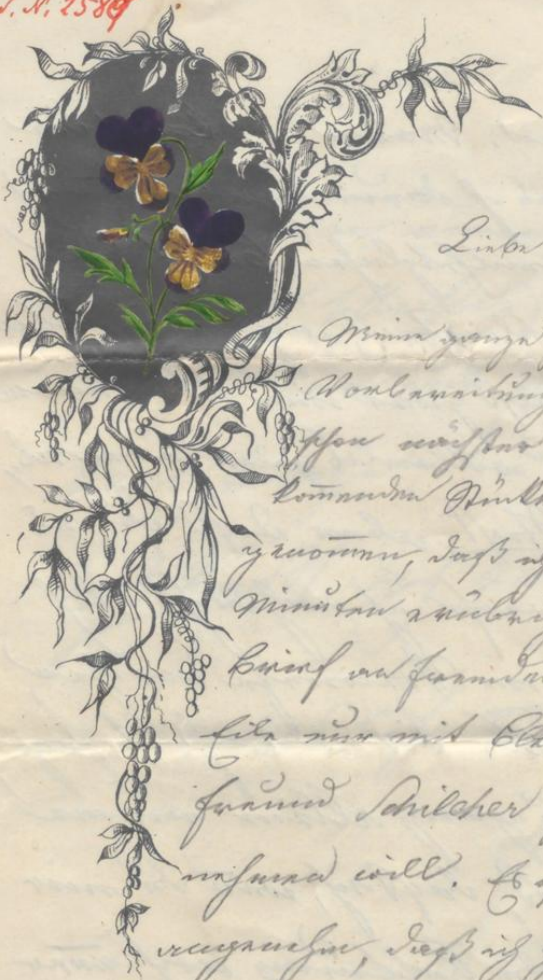 S. N. 2589
Liebe
Meine ganze
Vorbereitung
schon nächster
kom̅enden Stück
genom̅en, daß ich
Minuten erübri
Brief an Freunde
Eile nur mit
Freund Schilcher
nehmen will. Es
angenehm, daß ich